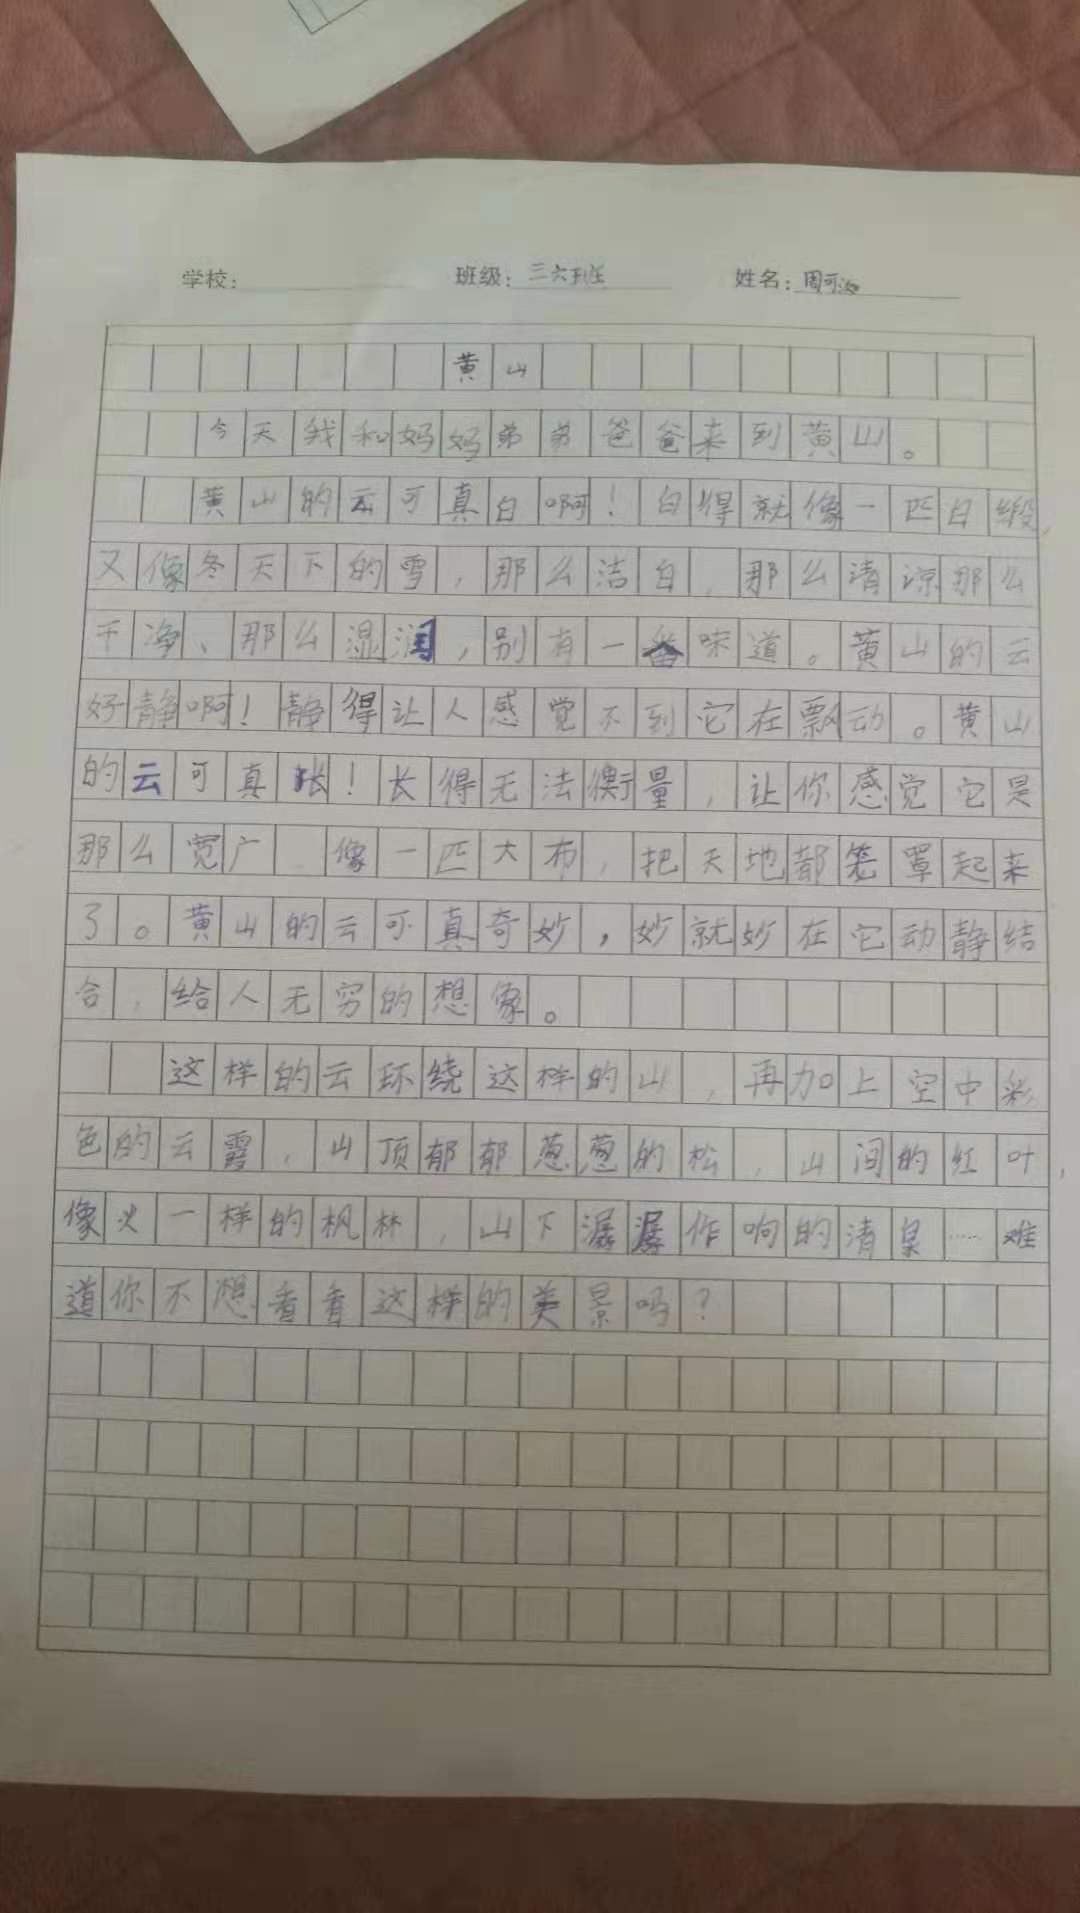 学校: 班级: 三六班 姓名: 周可
黄山
今天我和妈妈弟弟爸爸来到黄山。
黄山的云可真白啊!白得就像一匹白缎,
又像冬天下的雪,那么洁白,那么清凉那么
干净、那么湿润,别有一番味道。黄山的云
好静啊!静得让人感觉不到它在飘动。黄山
的云可真长!长得无法衡量,让你感觉它是
那么宽广 像一匹大布,把天地都笼罩起来
了。黄山的云可真奇妙,妙就妙在它动静结
合,给人无穷的想像。
这样的云环绕这样的山,再加上空中彩
色的云霞,山顶郁郁葱葱的松,山间的红叶,
像火一样的枫林,山下潺潺作响的清泉……难
道你不想看看这样的美景吗?